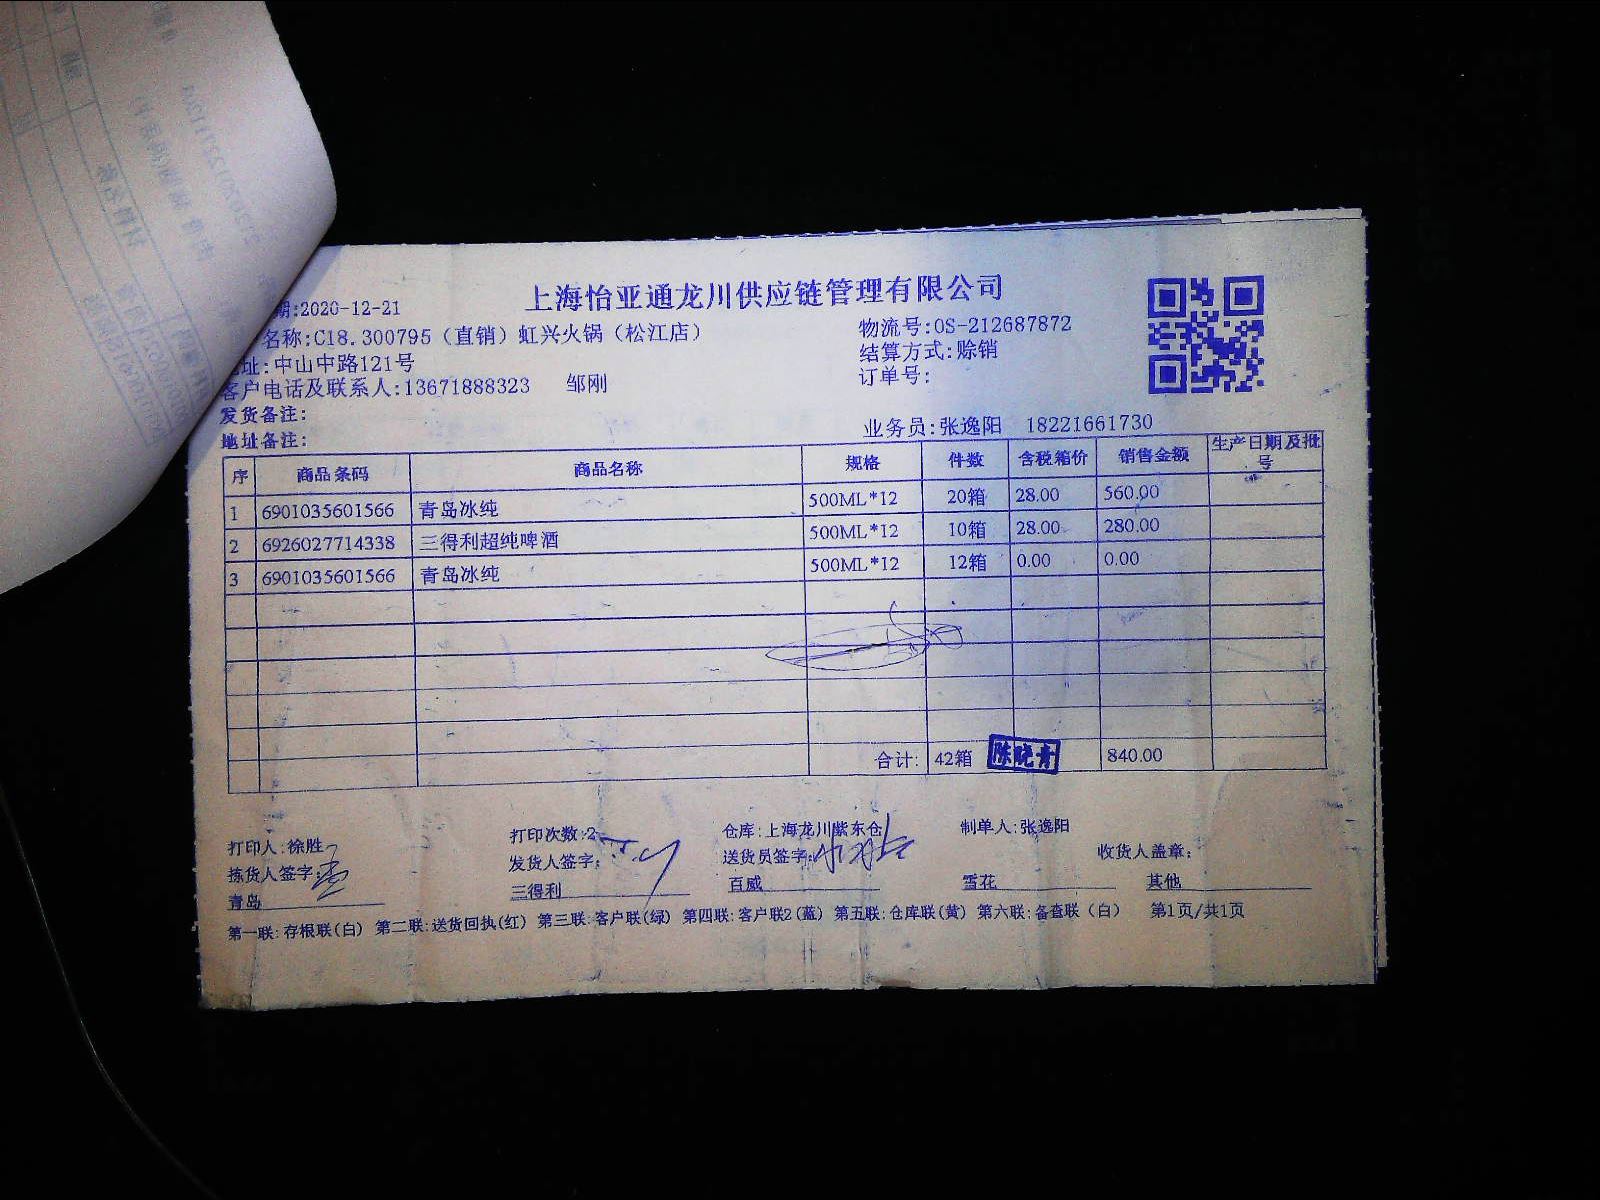 上海怡亚通龙川供应链管理有限公司
期:2020-12-21
名称:C18.300795（直销）虹兴火锅（松江店）
物流号:OS-212687872
址:中山中路121号
结算方式:赊销
客户电话及联系人:13671888323 邹刚
订单号:
发货备注:
地址备注:
业务员:张逸阳 18221661730
序 商品条码 商品名称 规格 件数 含税箱价 销售金额 生产日期及批号
1 6901035601566 青岛冰纯 500ML*12 20箱 28.00 560.00
2 6926027714338 三得利超纯啤酒 500ML*12 10箱 28.00 280.00
3 6901035601566 青岛冰纯 500ML*12 12箱 0.00 0.00
合计: 42箱 陈晓青 840.00
打印人:徐胜 打印次数:2 仓库:上海龙川紫东仓 制单人:张逸阳
拣货人签字: 发货人签字: 送货员签字: 收货人盖章:
青岛 三得利 百威 雪花 其他
第一联:存根联(白) 第二联:送货回执(红) 第三联:客户联(绿) 第四联:客户联2(蓝) 第五联:仓库联(黄) 第六联:备查联（白） 第1页/共1页